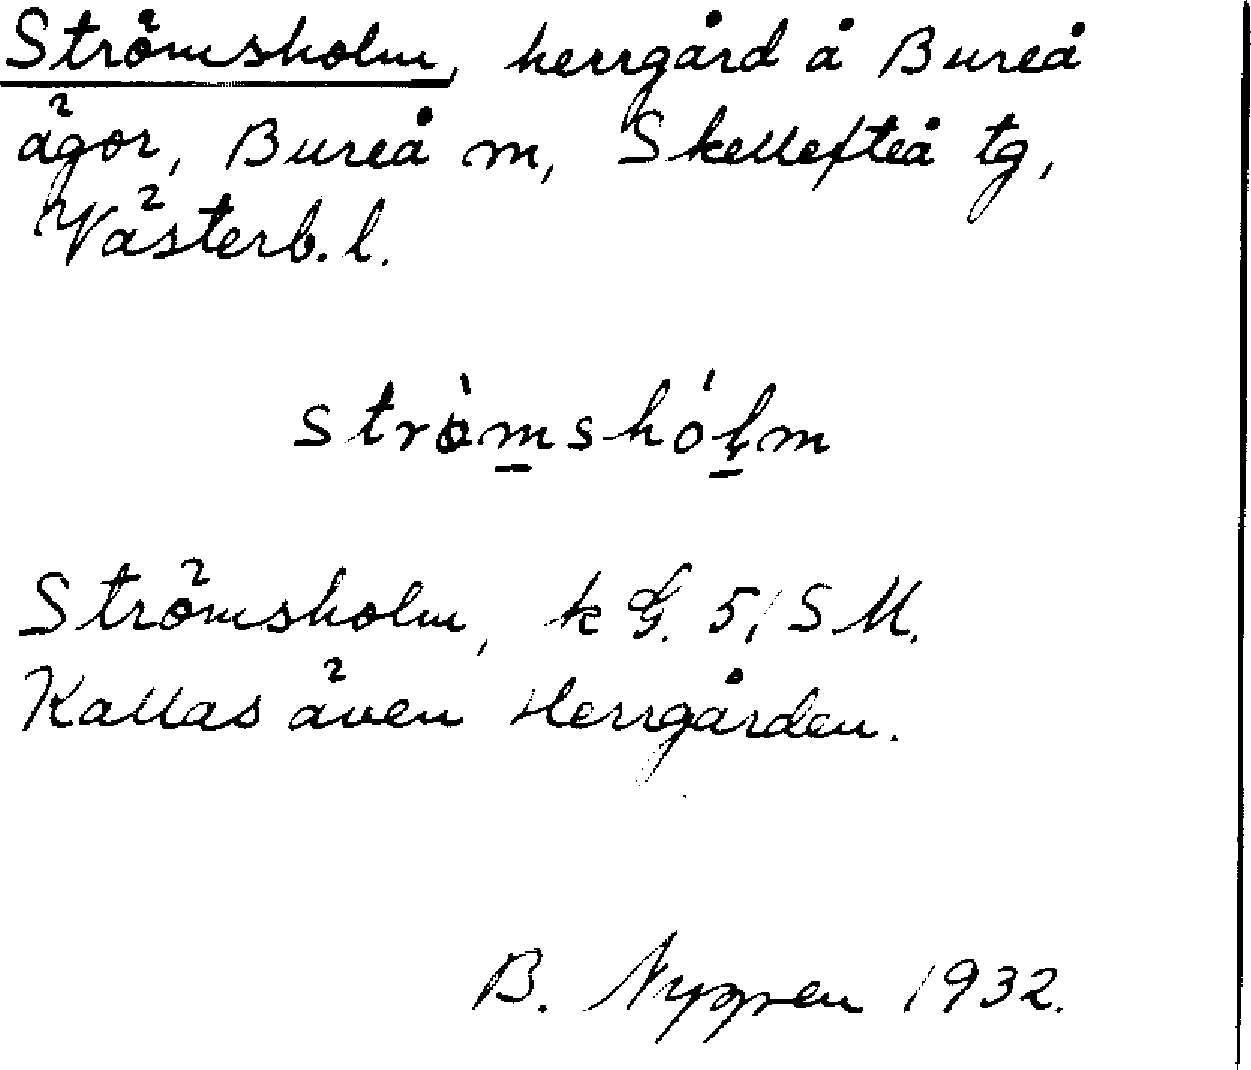 Strömsholm, herrgård å Bureå
ägor, Bureå m, Skellefteå tg,
Västerb. l.
strö̀mshól̥m
Strömsholm, k G. 5, SM.
Kallas även Herrgården.
B. Nygren 1932.